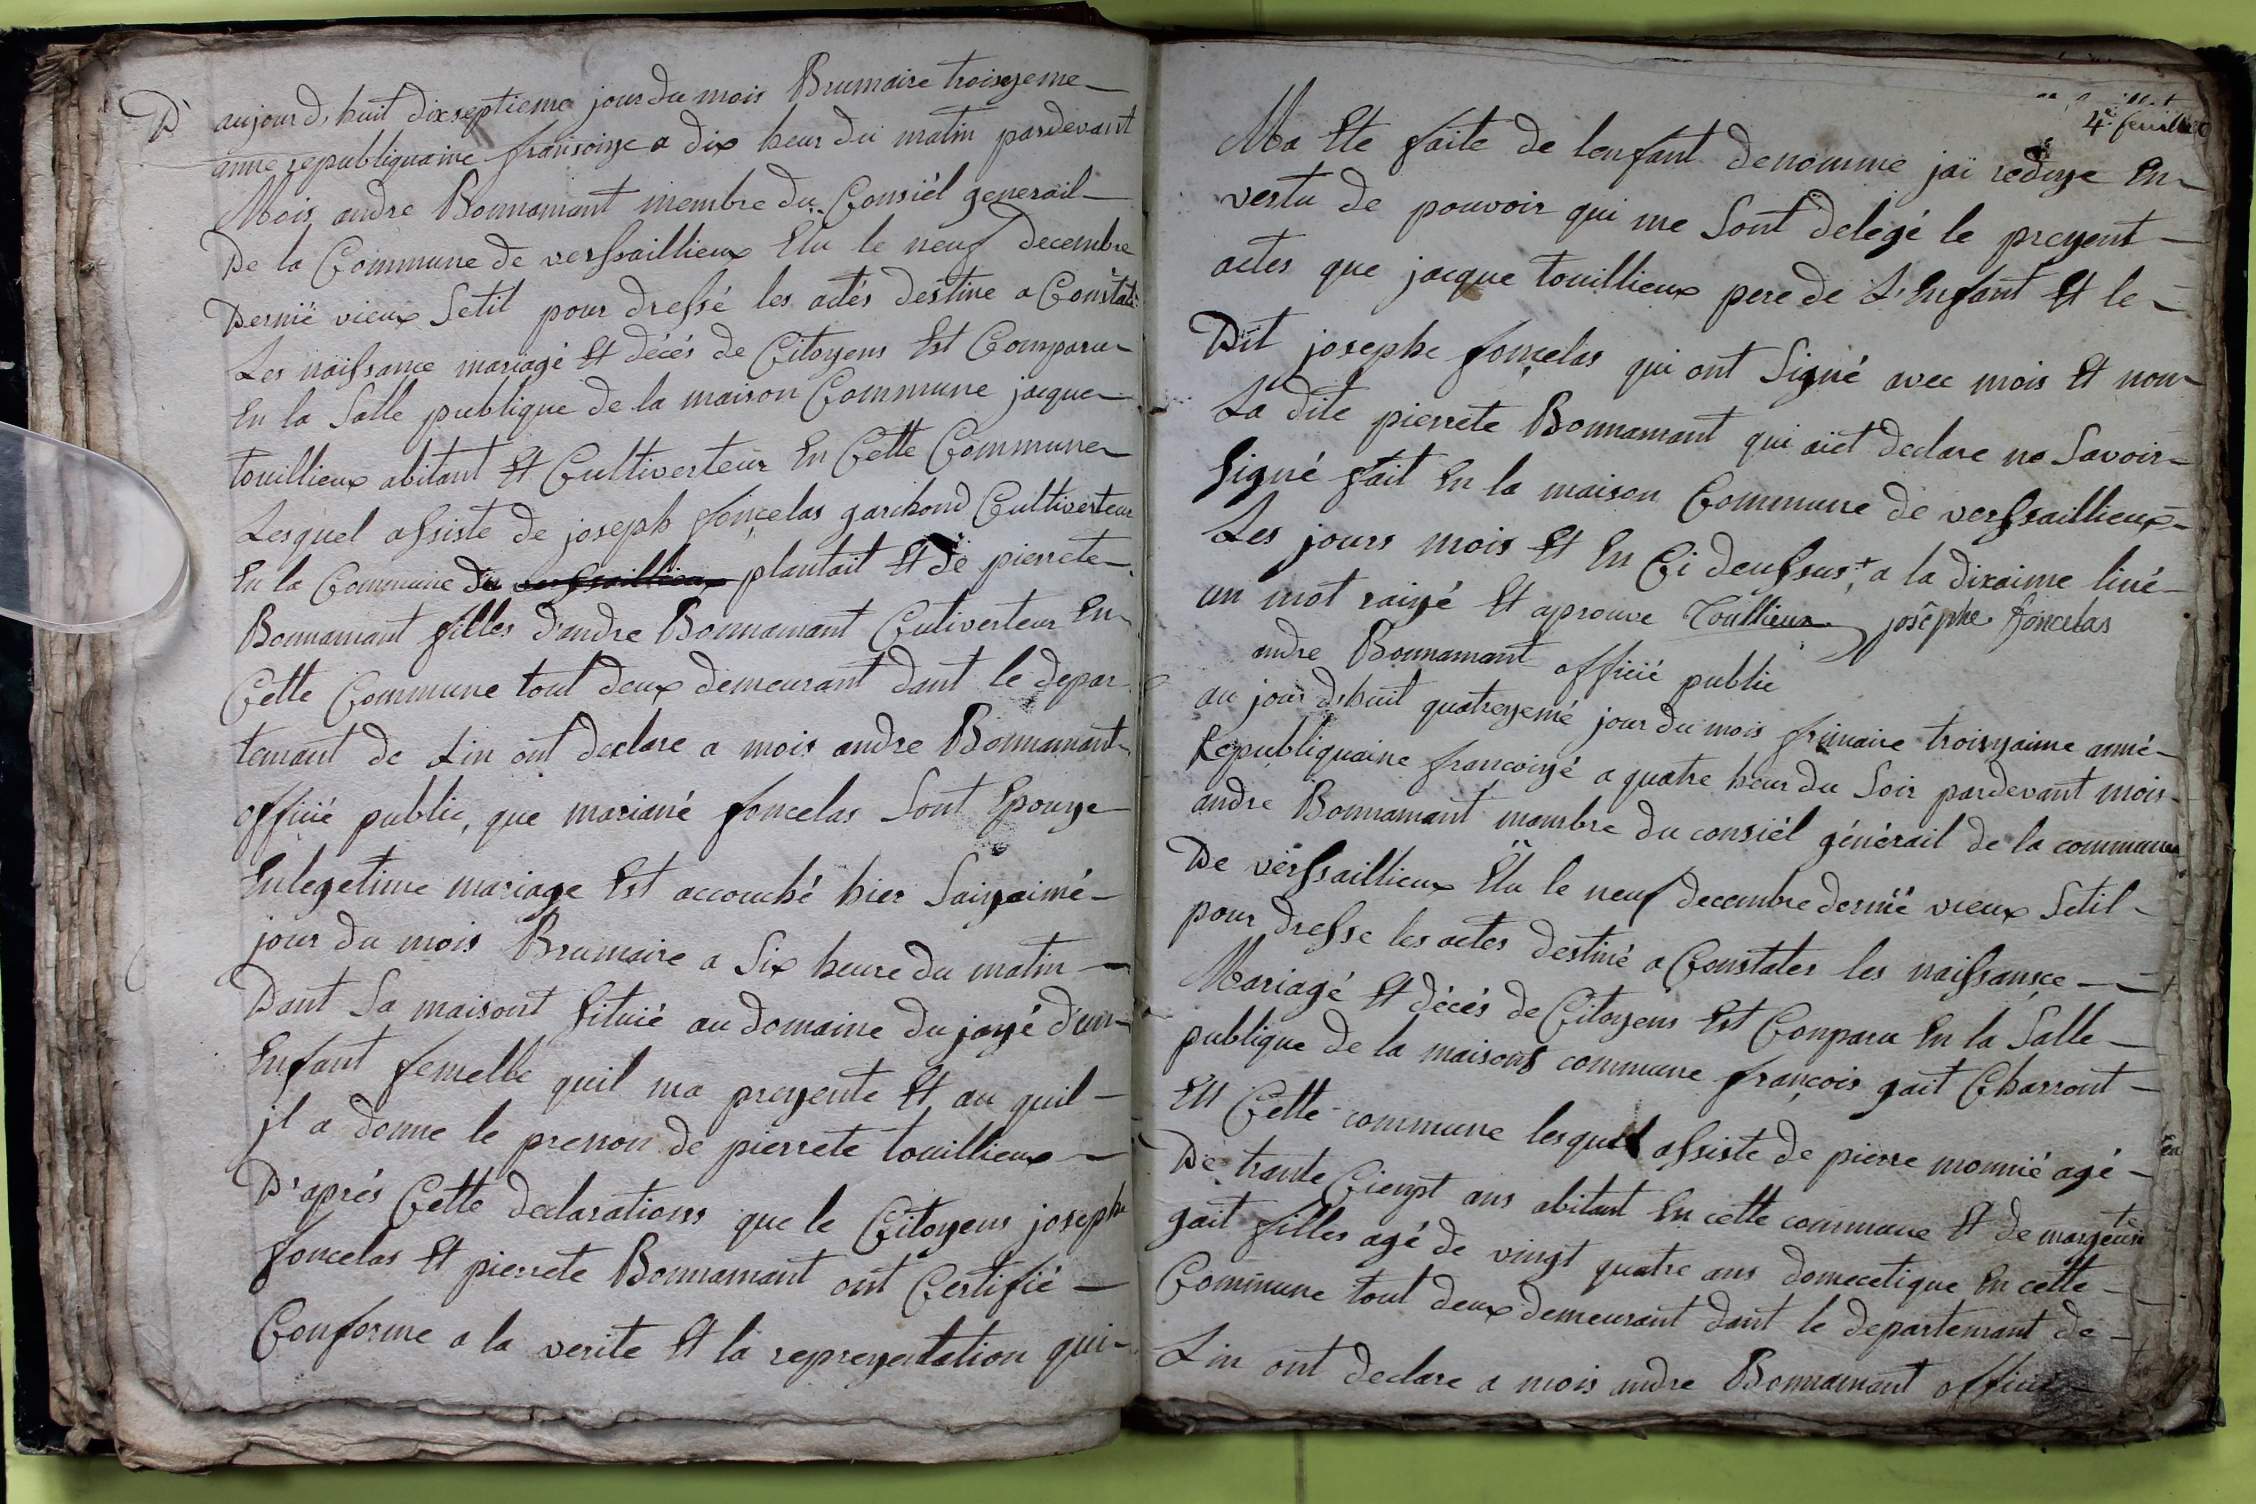 D
aujour d,huit dixseptieme jour du mois Brumaire troisyeme
anne republiquaine fransoise a dix heur du matin pardevant
Mois andre Bonnamant membre du Consiél generail
De la Commune de versaillieux Elu le neuf decembre
Dernié vieux Setil pour dressé les actés destine a Constaté
Les naissance mariagé Et décés de Citoyens Est Comparu
En la Salle publique de la maison Commune jacque
touillieux abitant Et Cultiverteur En Cette Commune
Lesquel assiste de joseph fonçelas garihond Cultiverteur
En la Commune de versaillieux plantait Et de pierrete
Bonnamant filles d'andre Bonnamant Cutiverteur En
Cette Commune tout deux demeurant dant le depar
temant de Lin ont declare a mois andre Bonnamant
officié public, que mariané foncelas Sont Epouze
Enlegetime mariage Est accouché hier Saizaimé
jour du mois Brumaire a Six heure du matin
Dant Sa maisont Situié au domaine du jayé d'un
Enfant femelle quil ma prezente Et au quil
jl a donne le prenon de pierrete touillieux
D'aprés Cette declarations que le Citoyens josephe
foncelas Et pierrete Bonnamant ont Certifié
Conforme a la verite Et la reprezentation qui
4e feuillet
Ma Ete faite de lenfant denomme jai redige En
vertu de pouvoir qui me Sont delegé le prezent
actes que jacque touillieux pere de L'Enfant Et le
Dit josephe fonçelas qui ont Signé avec mois Et non
La dite pierrete Bonnamant qui aiet declare ne Savoir
Signé fait En la maison Commune de versaillieux
Les jours mois Et En Ci deussus + a la dixaime liné
un mot raiyé Et aprouve Toullieux josêphe foncelas
andre Bonnamant officié public
au jour d,huit quatreyemé jour du mois frimaire troisyaime anné
Republiquaine francoizé a quatre heur du Soir pardevant mois
andre Bonnamant mambre du consiél générail de la commune
De versaillieux Elu le neuf decembre dernïë vieux Setil
pour dresse les actes destiné a Constater les naissansçe
Mariagé Et décés de Citoyens Est Conparu En la Salle
publique de la maisons commune françois gait Charront
En Cette commune lesquel assiste de pierre monnié agé
De trante Cienpt ans abitant En cette commune Et de margeurite
gait filles agé de vingt quatre ans domecetique En cette
Commune tout deux demeurant dant le departemant de
Lin ont declare a mois andre Bonnamant officié